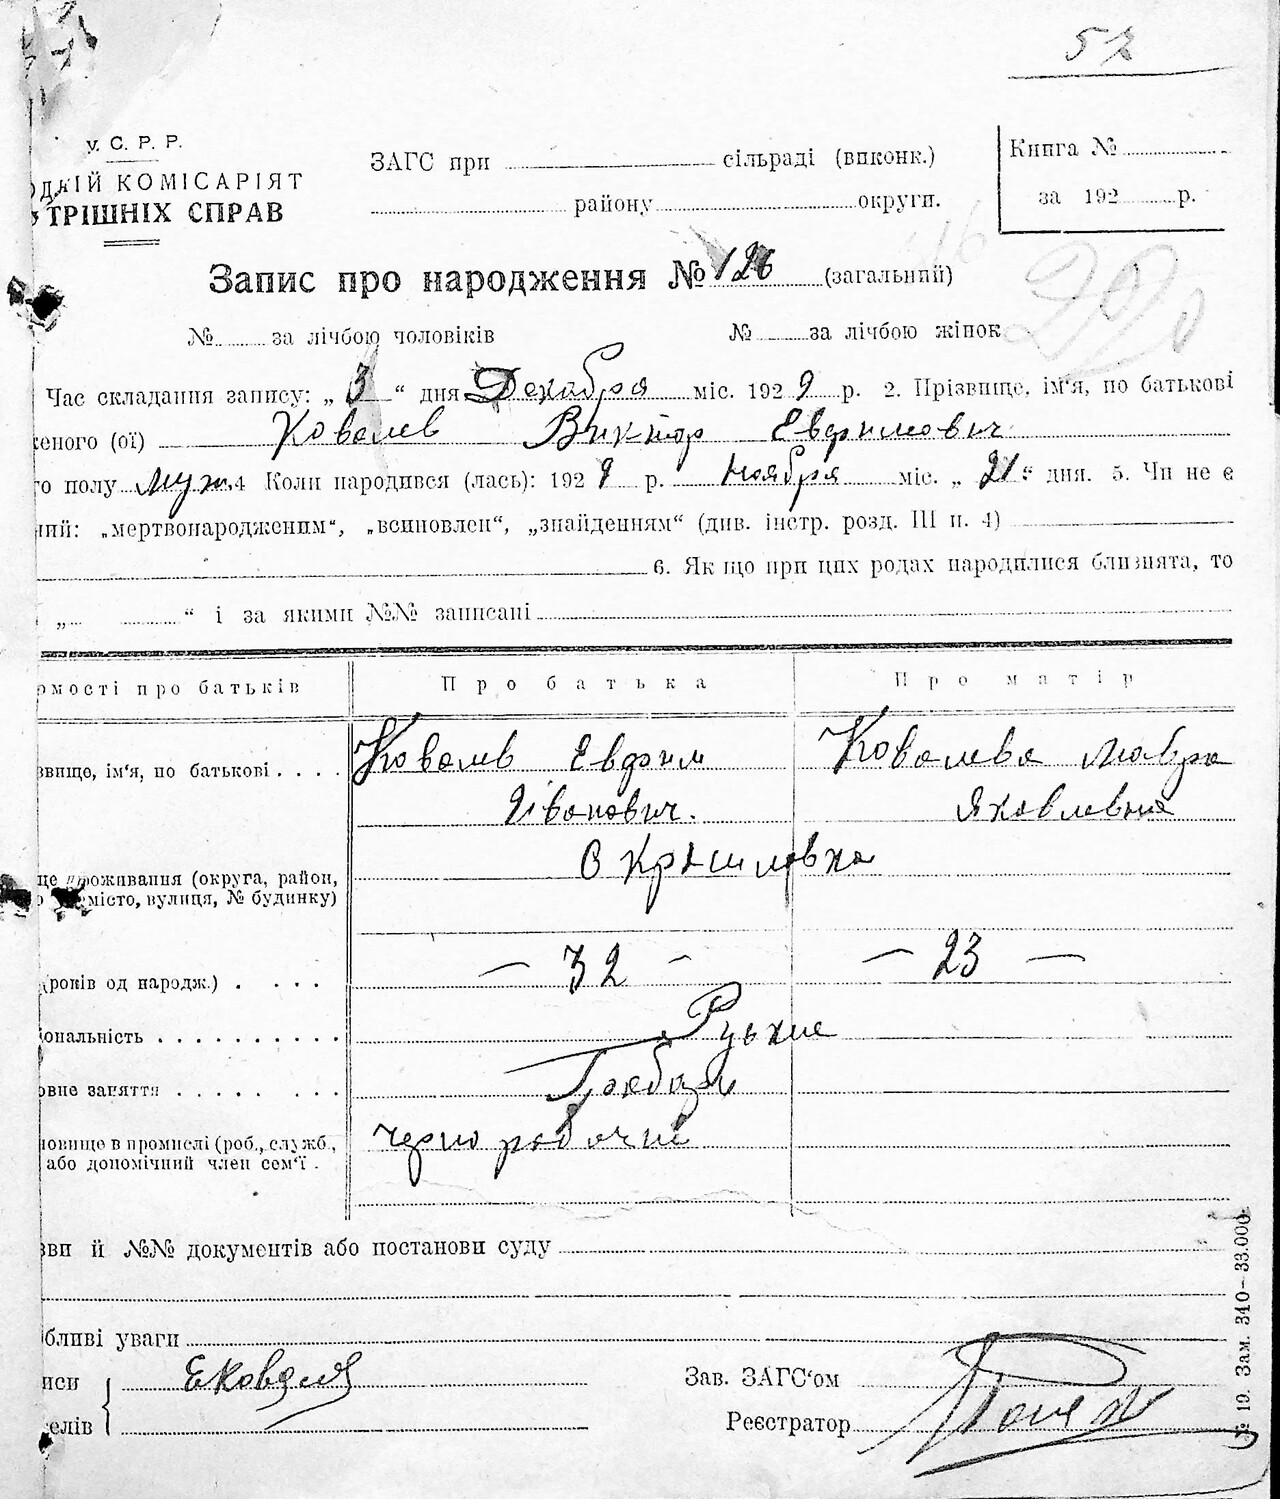 52
У. С. Р. Р.
ОДНІЙ КОМІСАРІЯТ
ТРІШНІХ СПРАВ
ЗАГС при сільраді (виконк.)
району округи.
Книга №
за 192 р.
Запис про народження № 126 (загальний)
№ за лічбою чоловіків № за лічбою жінок
Час складання запису: „ 3 “ дня Декабря міс. 192 9 р. 2. Прізвище, ім'я, по батькові
женого (ої) Ковалев Виктор Евфимович
го полу муж. 4 Коли народився (лась): 192 9 р. Ноября міс. „ 21 “ дня. 5. Чи не є
ний: „мертвонародженим“, „всиновлен“, „знайденням“ (див. інстр. розд. III п. 4)
6. Як що при цих родах народилися близнята, то
„ “ і за якими №№ записані
омості про батьків Про батька Про матір
звище, ім'я, по батькові Ковалев Евфим Ковалева Мавра
Иванович. Яковлевна
це проживання (округа, район,
місто, вулиця, № будинку)
(років од народж.) — 32 — — 23 —
іональність Руские
овне заняття
новище в промислі (роб., служб., чернорабочий
або допомічний член сем'ї .
зви й №№ документів або постанови суду
бливі уваги
иси
елів
Зав. ЗАГС'ом
Реєстратор
№ 19. Зам. 340—33.000.